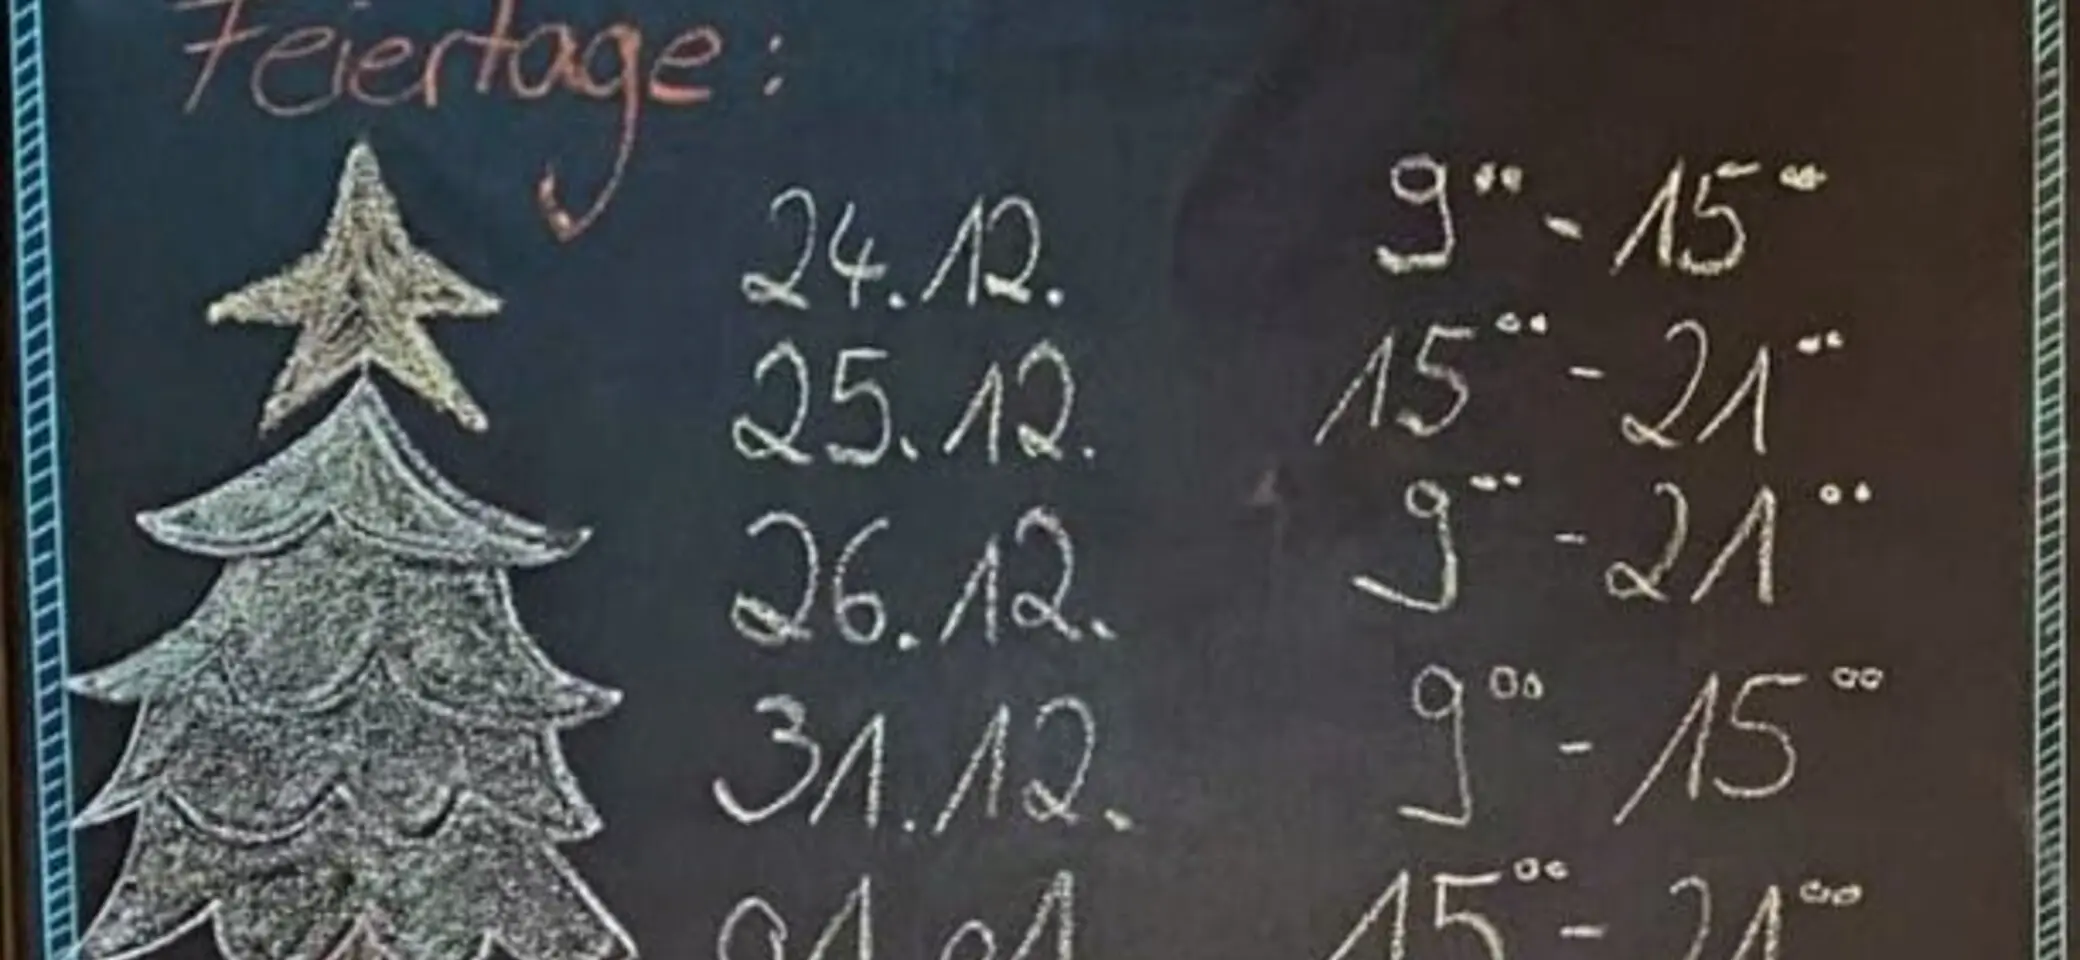 Feiertage:
24.12. 9⁰⁰ - 15⁰⁰
25.12. 15⁰⁰ - 21⁰⁰
26.12. 9⁰⁰ - 21⁰⁰
31.12. 9⁰⁰ - 15⁰⁰
01.01 15⁰⁰ - 21⁰⁰